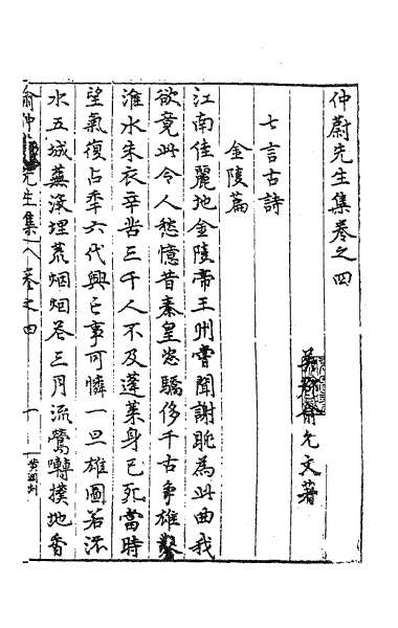 仲蔚先生集卷之四
吳郡俞允文著
七言古詩
金陵篇
江南佳麗地金陵帝王州嘗聞謝朓為此曲我
欲竟此令人愁憶昔秦皇恣驕侈千古爭雄鑿
淮水朱衣辛苦三千人不及蓬萊身已死當時
望氣復占季六代興亡事可憐一旦雄圖若流
水五城蕪淨埋荒烟烟巷三月流鶯囀撲地香
俞仲蔚先生集 卷之四 一 黃周刻